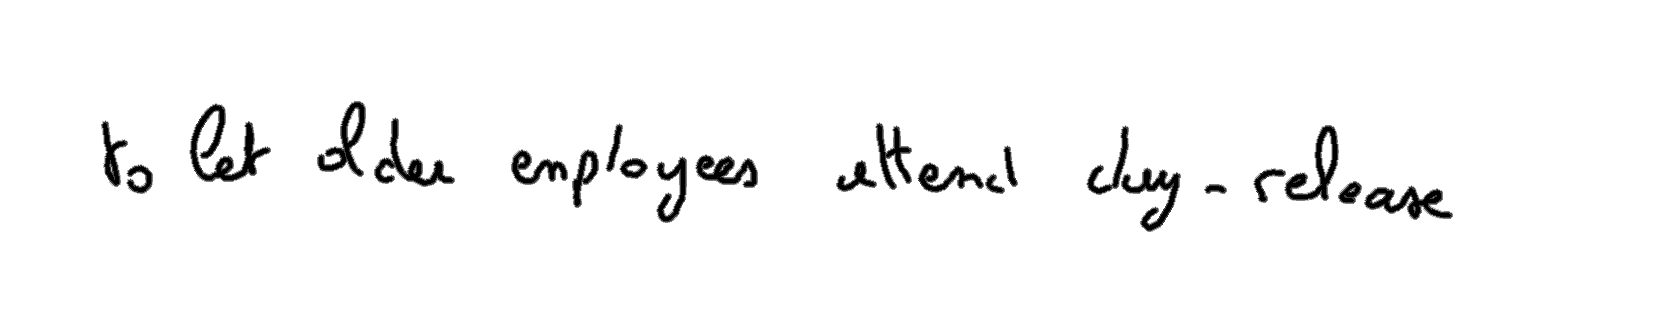 to let older employees attend day-release